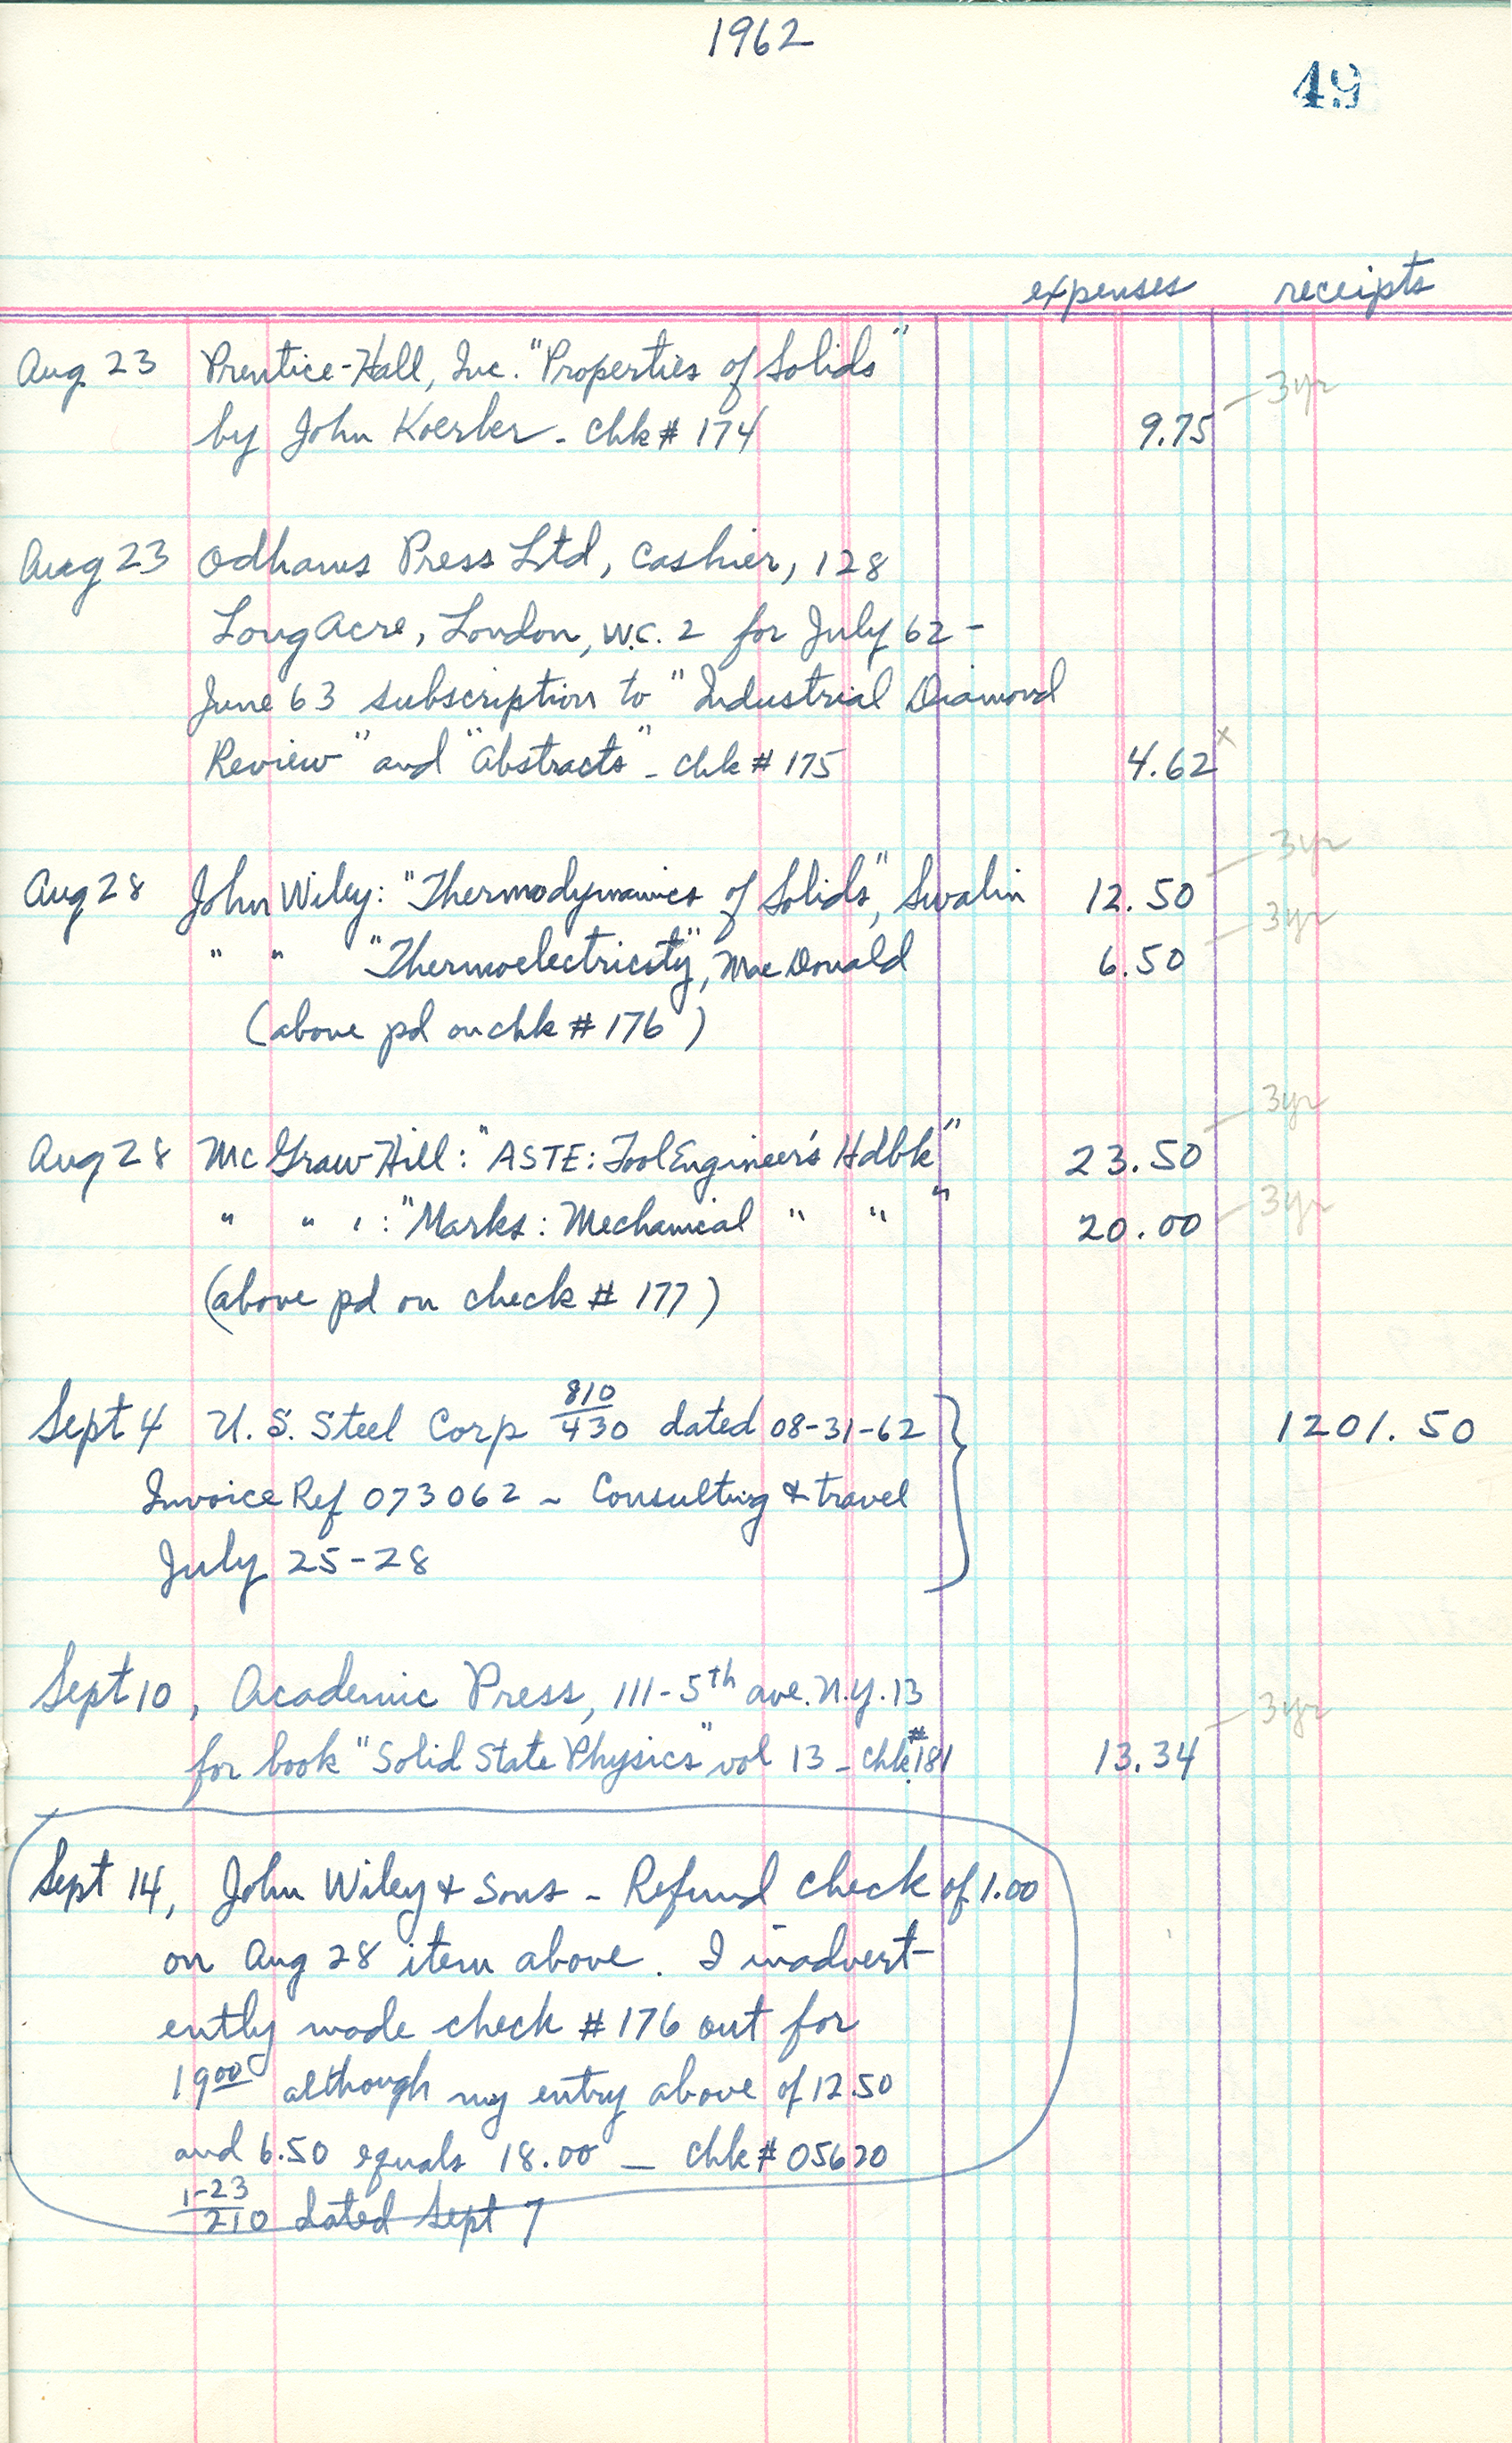 1962
49
expenses receipts
Aug 23 Prentice-Hall, Inc. "Properties of Solids"
3yr
by John Koerber - chk # 174 9.75
Aug 23 Odhams Press Ltd, Cashier, 128
Long Acre, London, W.C. 2 for July 62 -
June 63 subscription to "Industrial Diamond
Review" and "Abstracts" - chk # 175 4.62 x
3yr
Aug 28 John Wiley: "Thermodynamics of Solids", Swalin 12.50
3yr
" " "Thermoelectricity", MacDonald 6.50
(above pd on chk # 176)
3yr
Aug 28 McGraw-Hill: "ASTE: Tool Engineer's Hdbk" 23.50
3yr
" " " : "Marks: Mechanical " " " 20.00
(above pd on check # 177)
Sept 4 U.S. Steel Corp 810/430 dated 08-31-62 1201.50
Invoice Ref 073062 - Consulting & travel
July 25-28
Sept 10, Academic Press, 111-5th ave. N.Y. 13
3yr
for book "Solid State Physics" vol 13 - chk # 181 13.34
Sept 14, John Wiley & Sons - Refund check of 1.00
on Aug 28 item above. I inadvert-
ently made check # 176 out for
19.00 although my entry above of 12.50
and 6.50 equals 18.00 - chk # 05620
1-23/210 dated Sept 7